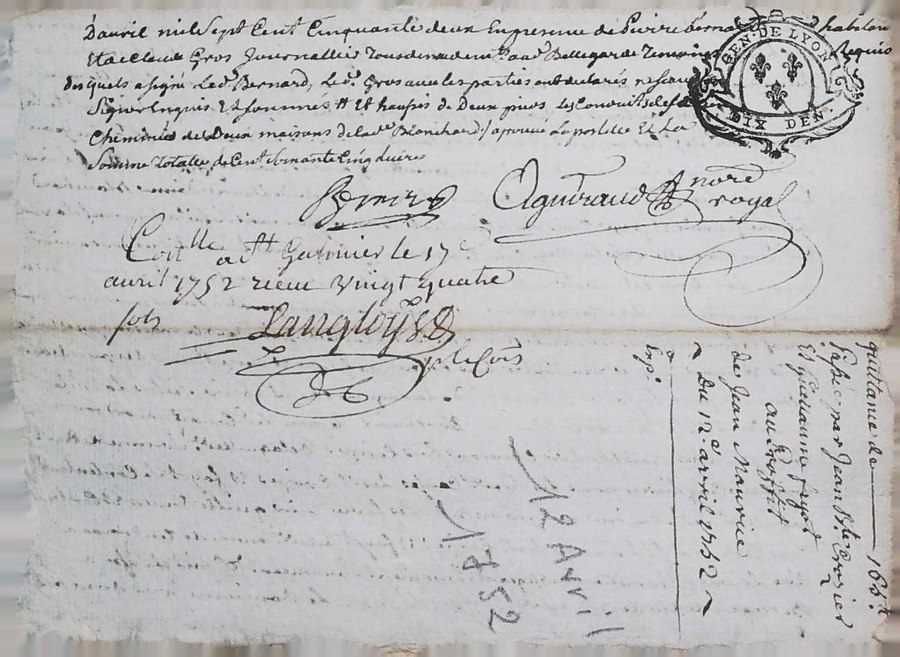 D'avril mil Sept Cent Cinquante deux En presence de Pierre Bernard habitan
Et Claude Gros Journallier tous demeurant Bellegarde Temoins Requis
desquels a signé Led. Bernard, Led. Gros avec les parties ont declarés ne savoir
Signer Enquis Et Sommés Et
Cheminée de Deux maisons de lad. Blanchard / aprouvé La postille Et La
Somme totalle de Cent Soixante Cinq livres
GEN. DE LYON
DIX DEN.
Bernard
notre
royal
Con.lle a St Galmier le 17e
avril 1752 receu Vingt quatre
sols
Langloys
quittance de 165 tt
passée par Jean Bte Crozier
Et Guillaume fayol
au proffit
de Jean Maurice
~ Du 12e avril 1752 ~
Exp.
12 Avril
1752